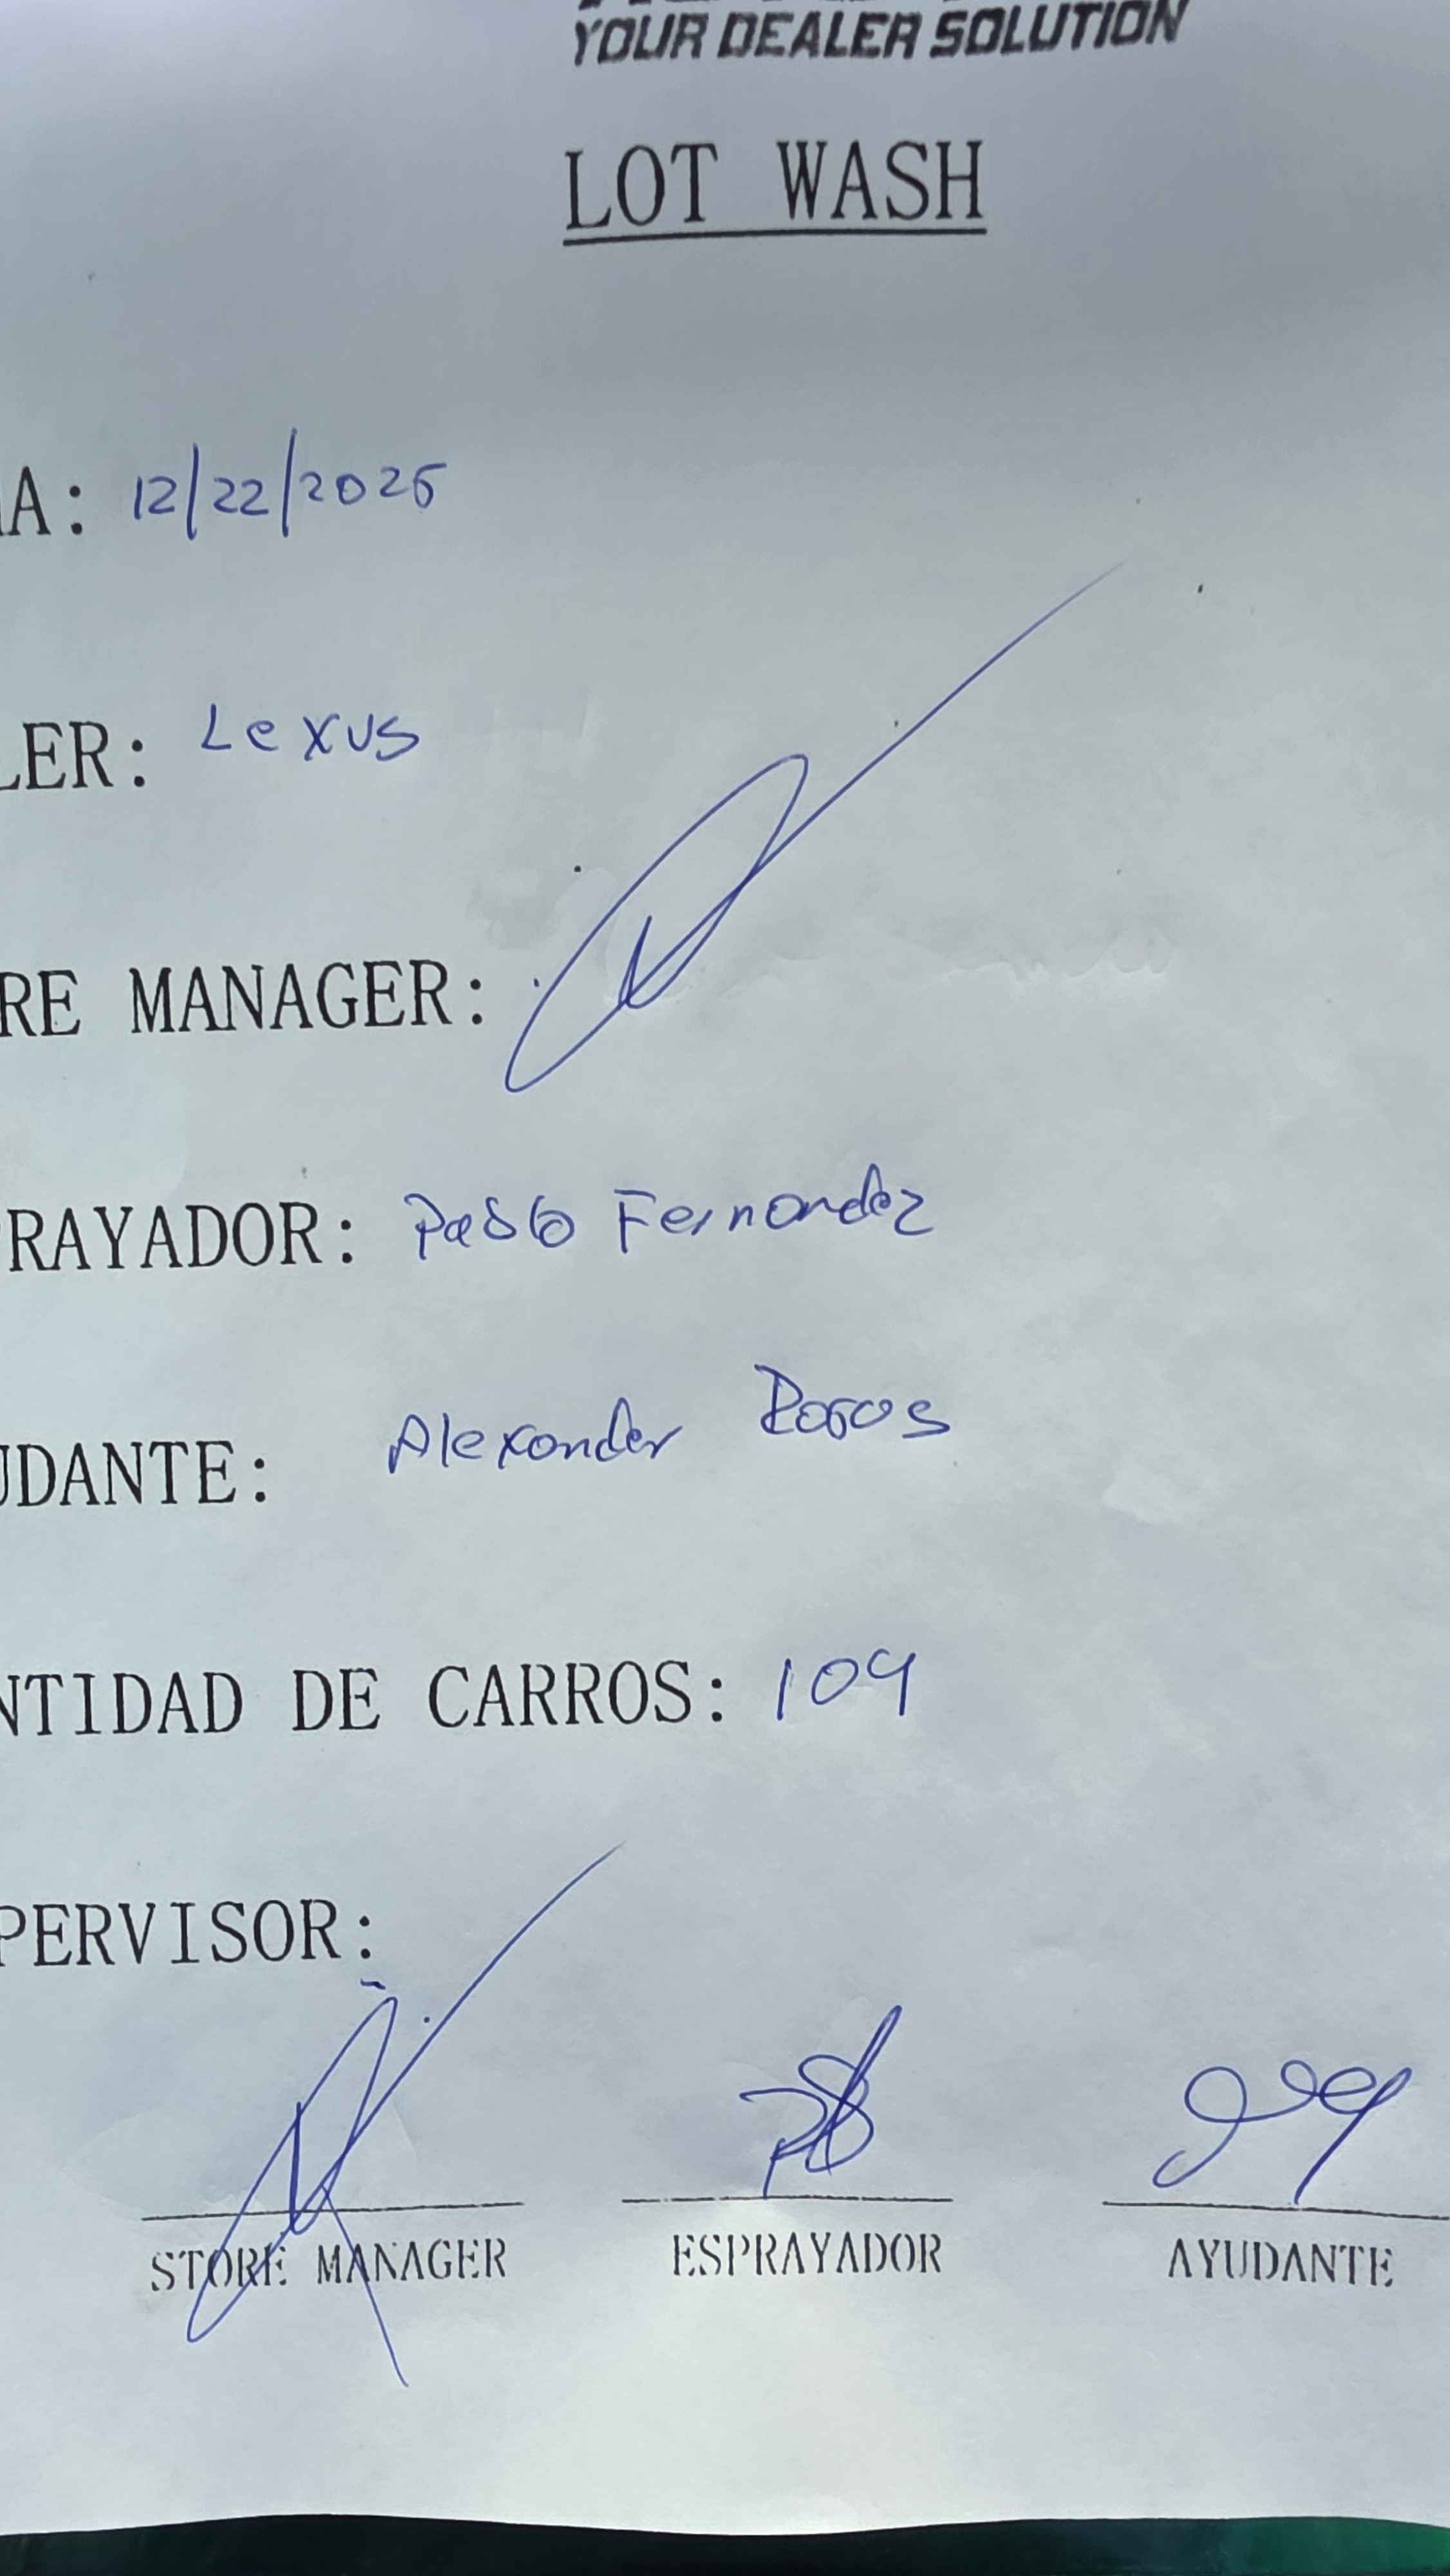 YOUR DEALER SOLUTION
LOT WASH
A: 12/22/2025
LER: Lexus
RE MANAGER:
RAYADOR: Pablo Fernandez
UDANTE: Alexander
NTIDAD DE CARROS: 109
PERVISOR:
STORE MANAGER ESPRAYADOR AYUDANTE